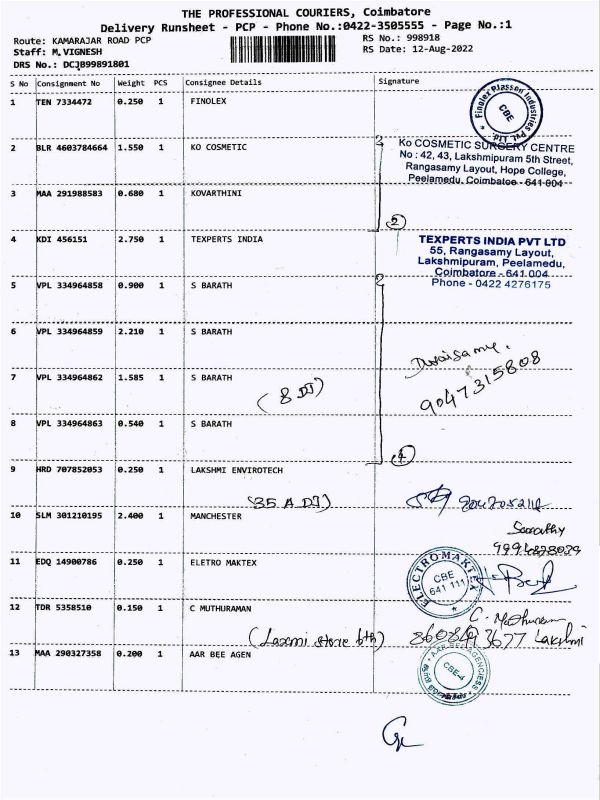 THE PROFESSIONAL COURIERS, Coimbatore
Delivery Runsheet - PCP - Phone No.:0422-3505555 - Page No.:1
Route: KAMARAJAR ROAD PCP RS No.: 998918
Staff: M.VIGNESH RS Date: 12-Aug-2022
DRS No.: DCJB99891801
S No Consignment No Weight PCS Consignee Details Signature
1 TEN 7334472 0.250 1 FINOLEX
Finolex Plasson Industries Pvt. Ltd. CBE
2 BLR 4603784664 1.550 1 KO COSMETIC
Ko COSMETIC SURGERY CENTRE
No : 42, 43, Lakshmipuram 5th Street,
Rangasamy Layout, Hope College,
Peelamedu, Coimbatoe - 641 004
3 MAA 291988583 0.680 1 KOVARTHINI
2
4 KDI 456151 2.750 1 TEXPERTS INDIA
TEXPERTS INDIA PVT LTD
55, Rangasamy Layout,
Lakshmipuram, Peelamedu,
Coimbatore - 641 004
Phone - 0422 4276175
5 VPL 334964858 0.900 1 S BARATH
6 VPL 334964859 2.210 1 S BARATH
Duraisamy.
9047315808
7 VPL 334964862 1.585 1 S BARATH
(8 DJ)
8 VPL 334964863 0.540 1 S BARATH
4
9 HRD 707852053 0.250 1 LAKSHMI ENVIROTECH
(35 A DJ)
10 SLM 301210195 2.400 1 MANCHESTER
11 EDQ 14900786 0.250 1 ELETRO MAKTEX
ELECTROMAKTEX CBE 641 111
12 TDR 5358510 0.150 1 C MUTHURAMAN
C. Muthuraman
(Laxmi store 6th) 8608493677 Lakshmi
13 MAA 290327358 0.200 1 AAR BEE AGEN
AAR BEE AGENCIESS CBE-4